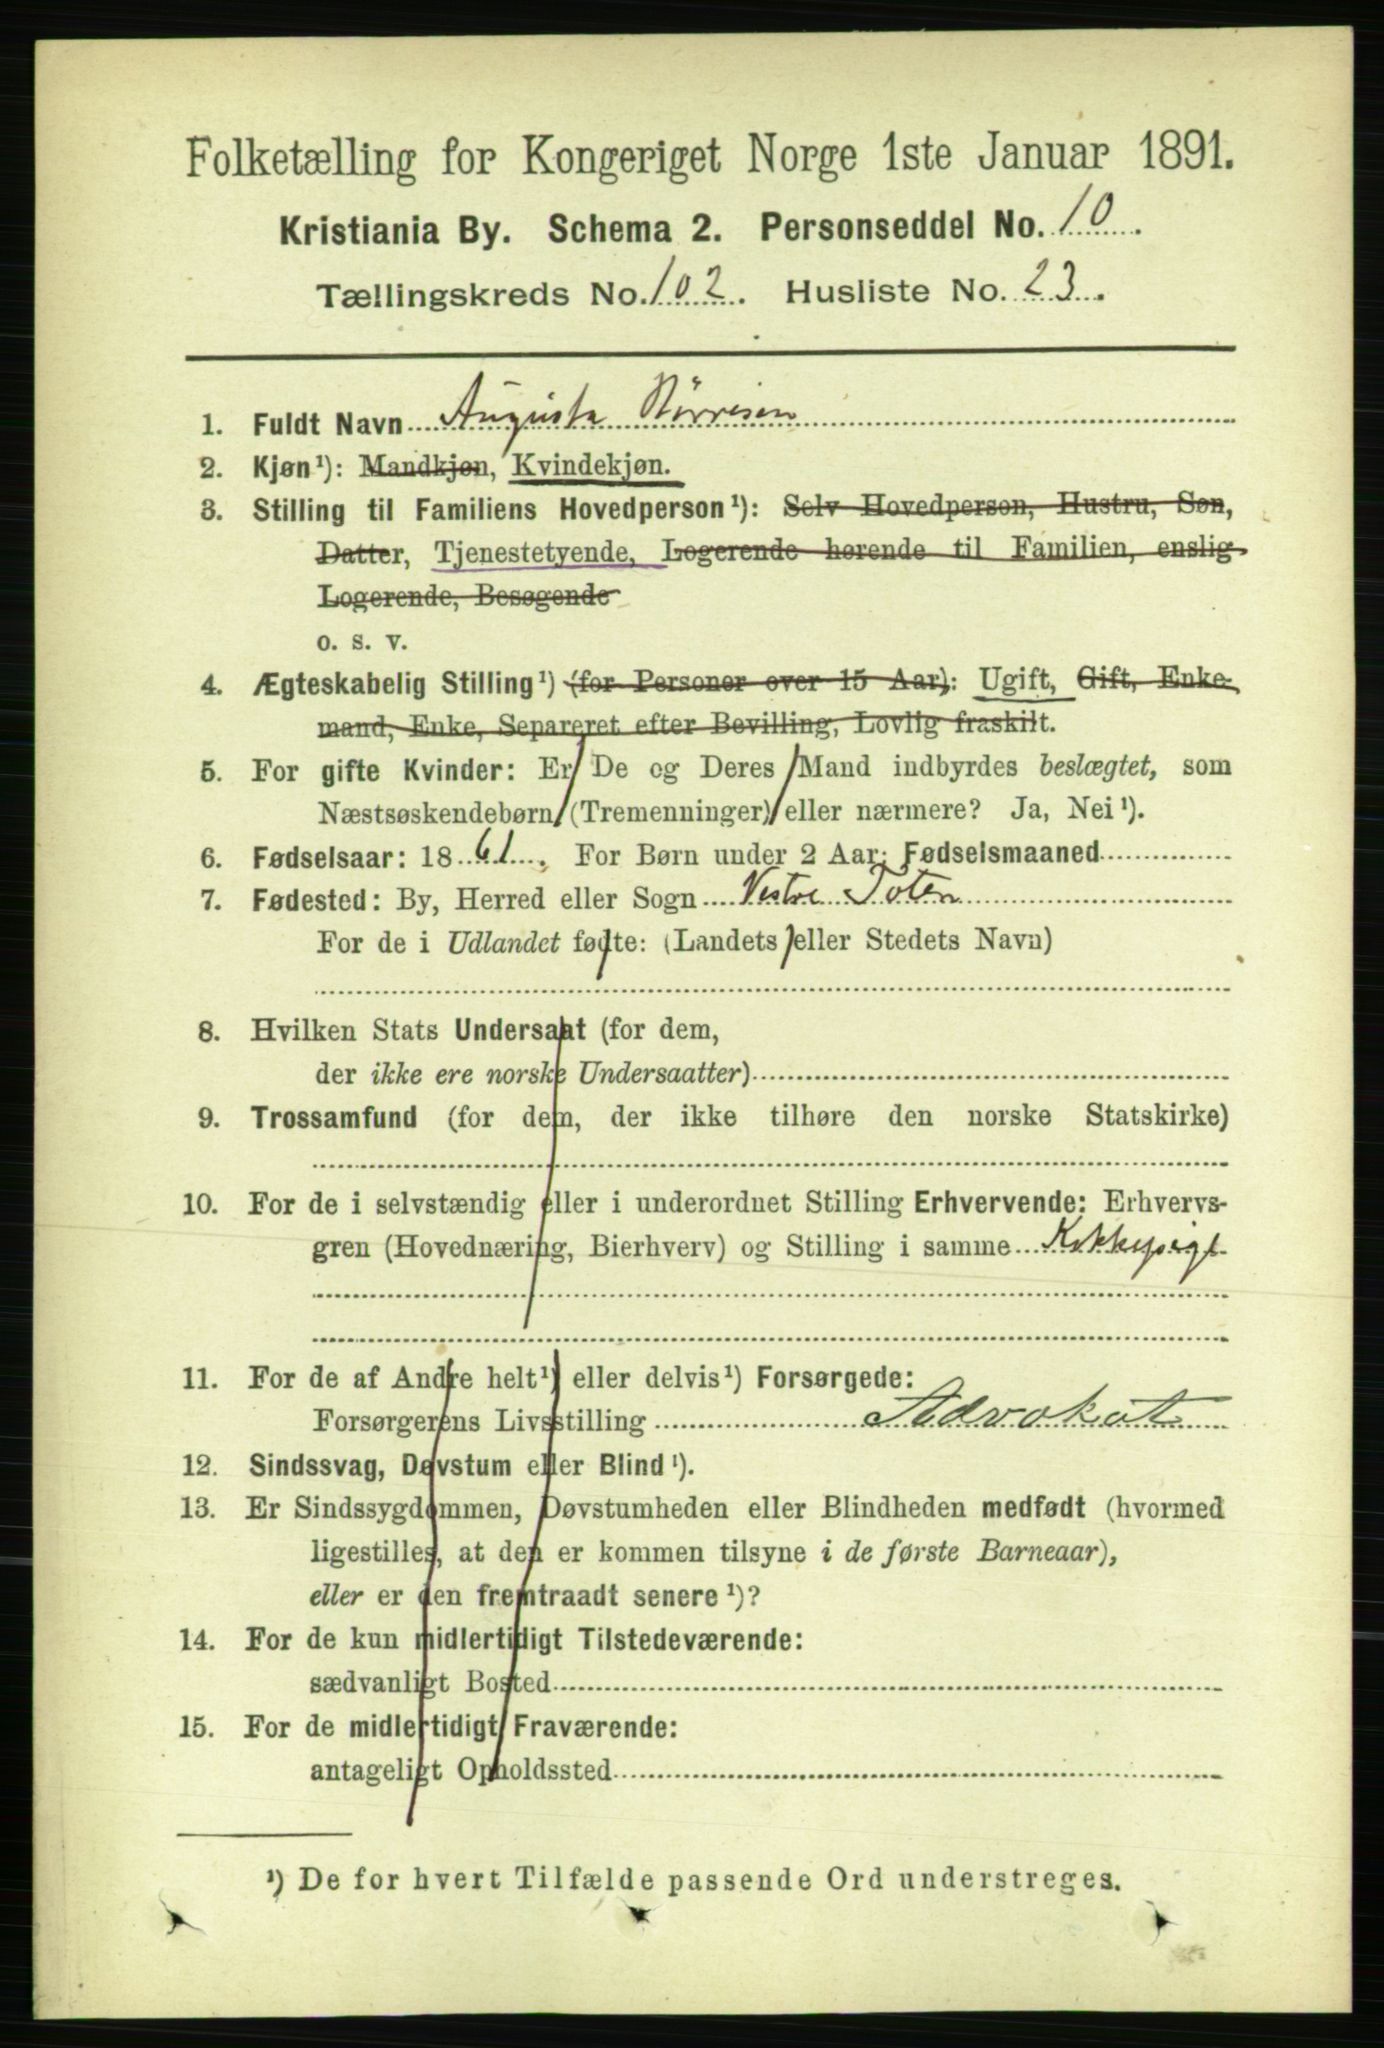 Folketælling for Kongeriget Norge 1ste Januar 1891.
Kristiania By. Schema 2. Personseddel No. 10.
Tællingskreds No. 102. Husliste No. 23.
1. Fuldt Navn Augusta Nörresen
2. Kjøn¹): Mandkjøn, Kvindekjøn.
3. Stilling til Familiens Hovedperson¹): Selv Hovedperson, Hustru, Søn,
Datter, Tjenestetyende, Logerende hørende til Familien, enslig
Logerende, Besøgende
o. s. v.
4. Ægteskabelig Stilling¹) (for Personer over 15 Aar): Ugift, Gift, Enke-
mand, Enke, Separeret efter Bevilling, Lovlig fraskilt.
5. For gifte Kvinder: Er De og Deres Mand indbyrdes beslægtet, som
Næstsøskendebørn (Tremenninger) eller nærmere? Ja, Nei¹).
6. Fødselsaar: 1861. For Børn under 2 Aar: Fødselsmaaned
7. Fødested: By, Herred eller Sogn Vestre Toten
For de i Udlandet fødte: (Landets eller Stedets Navn)
8. Hvilken Stats Undersaat (for dem,
der ikke ere norske Undersaatter)
9. Trossamfund (for dem, der ikke tilhøre den norske Statskirke)
10. For de i selvstændig eller i underordnet Stilling Erhvervende: Erhvervs-
gren (Hovednæring, Bierhverv) og Stilling i samme Kokkepige
11. For de af Andre helt¹) eller delvis¹) Forsørgede:
Forsørgerens Livsstilling Advokat
12. Sindssvag, Døvstum eller Blind¹).
13. Er Sindssygdommen, Døvstumheden eller Blindheden medfødt (hvormed
ligestilles, at den er kommen tilsyne i de første Barneaar),
eller er den fremtraadt senere¹)?
14. For de kun midlertidigt Tilstedeværende:
sædvanligt Bosted
15. For de midlertidigt Fraværende:
antageligt Opholdssted
¹) De for hvert Tilfælde passende Ord understreges.